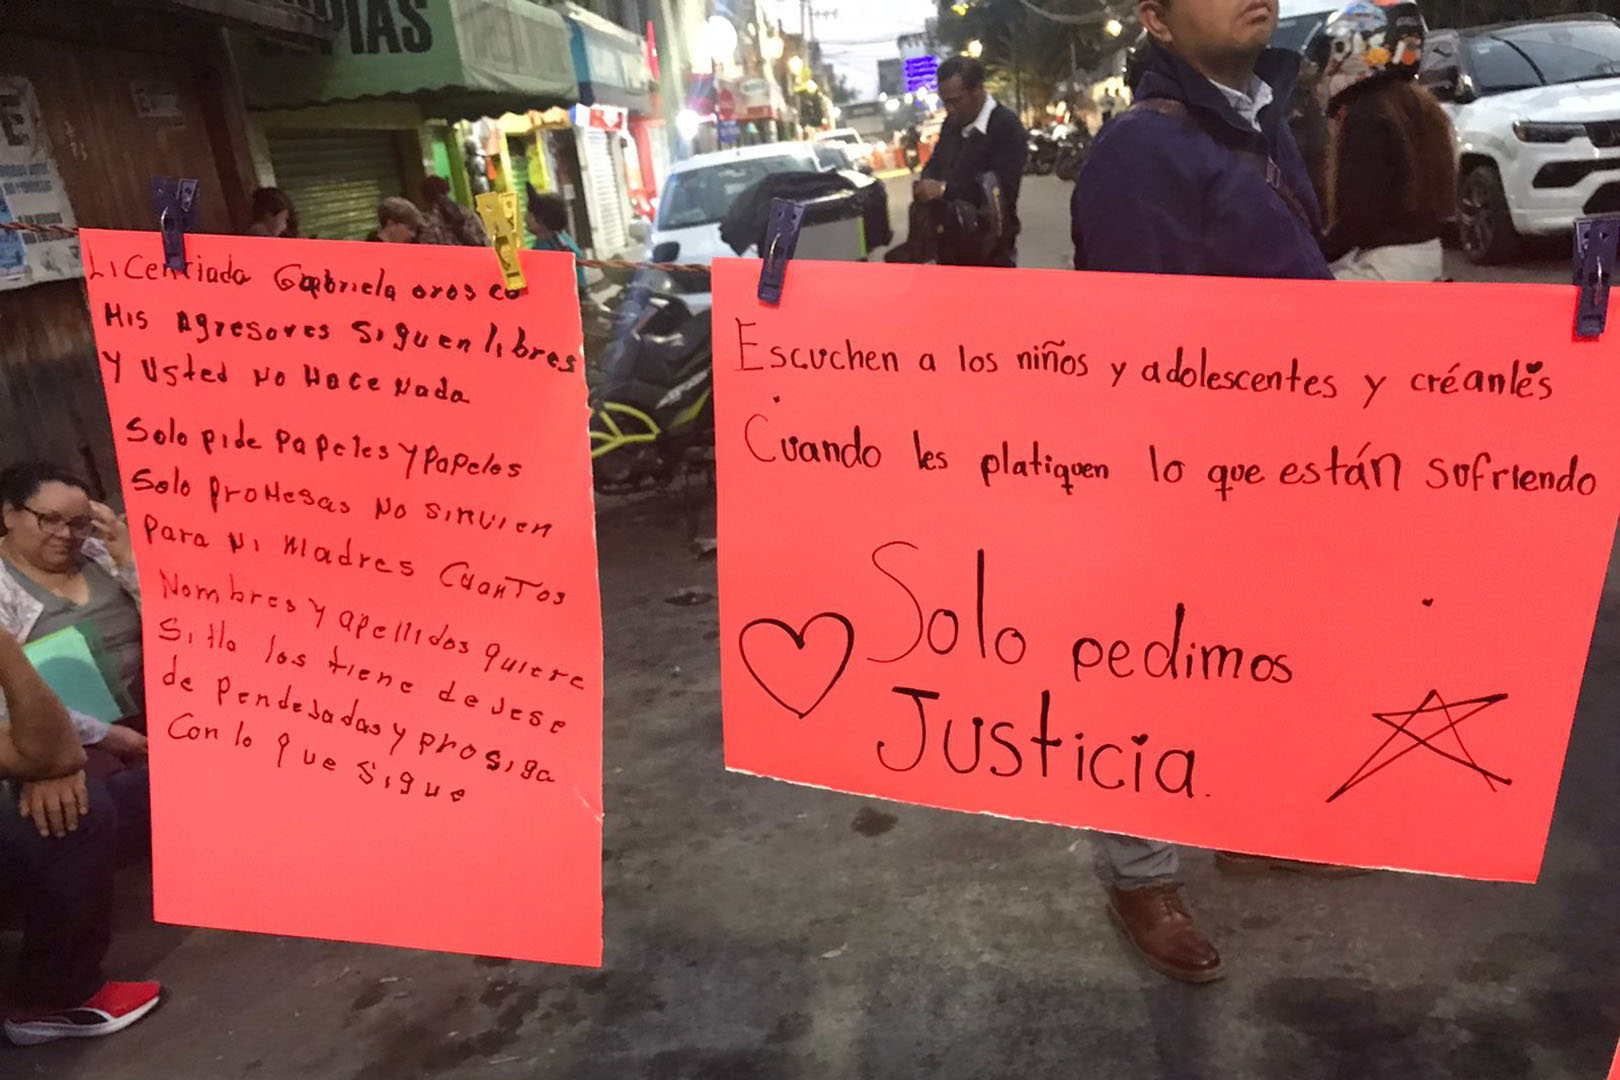 PIAS
Licenciada Gabriela orosco
Mis agresores siguen libres
y usted no hace nada
Solo pide papeles y papeles
Solo promesas no sirvien
para mi madres cuantos
Nombres y apellidos quiere
si llo los tiene dejese
de pendejadas y prosiga
Con lo que sigue
Escuchen a los niños y adolescentes y créanlés
Cuando les platiquen lo que están sufriendo
Solo pedimos
Justicia.